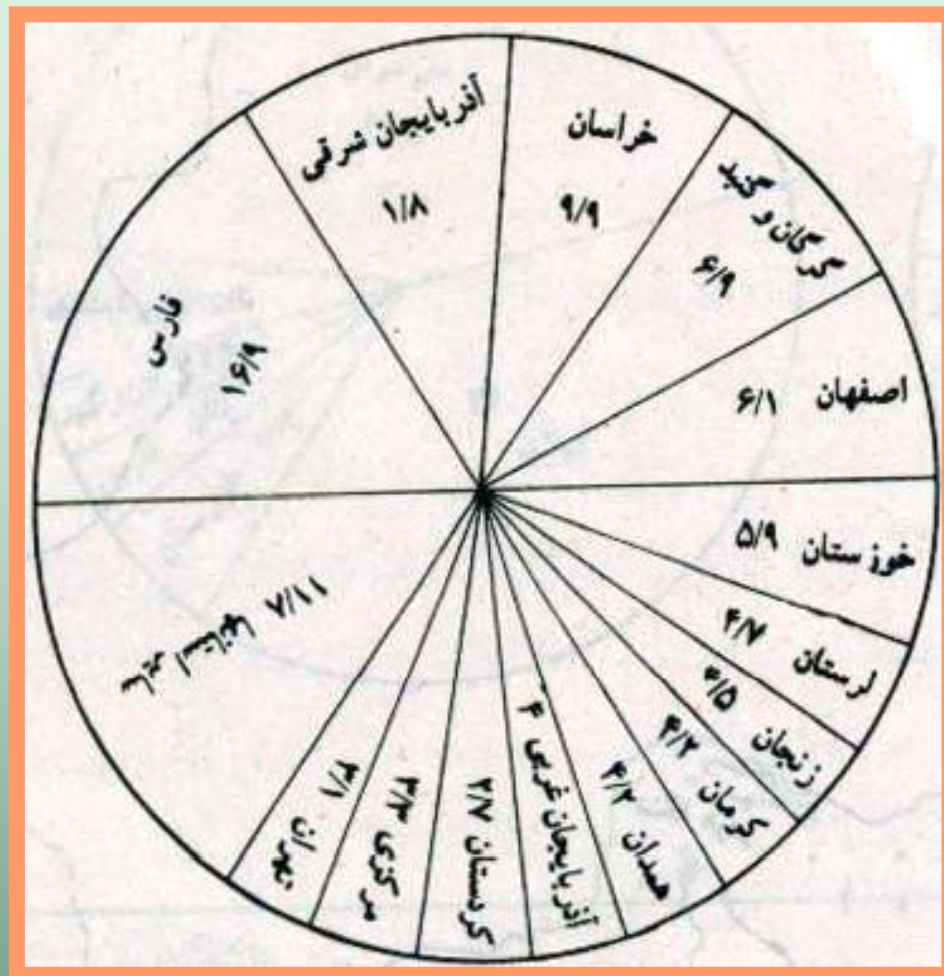 آذربایجان شرقی
۱/۸
خراسان
۹/۹
گرگان و گنبد
۶/۹
اصفهان ۶/۱
خوزستان ۵/۹
لرستان ۴/۷
زنجان ۴/۵
کرمان ۴/۲
همدان ۴/۲
آذربایجان غربی ۴
کردستان
مرکزی
تهران ۳/۱
سایر استانها ۱۱/۸
فارس
۱۶/۹